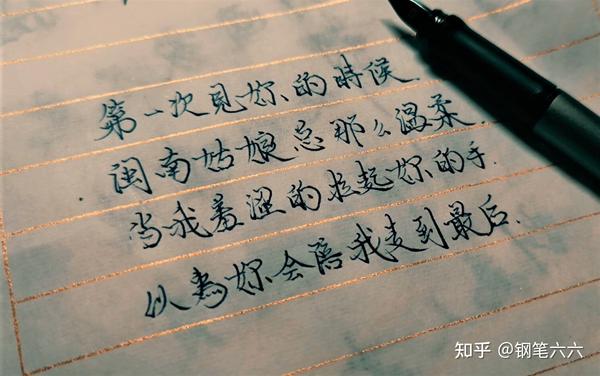 第一次見妳的時候
闽南姑娘总那么温柔
当我羞涩的拉起妳的手.
以為妳会陪我走到最后.
知乎 @钢笔六六